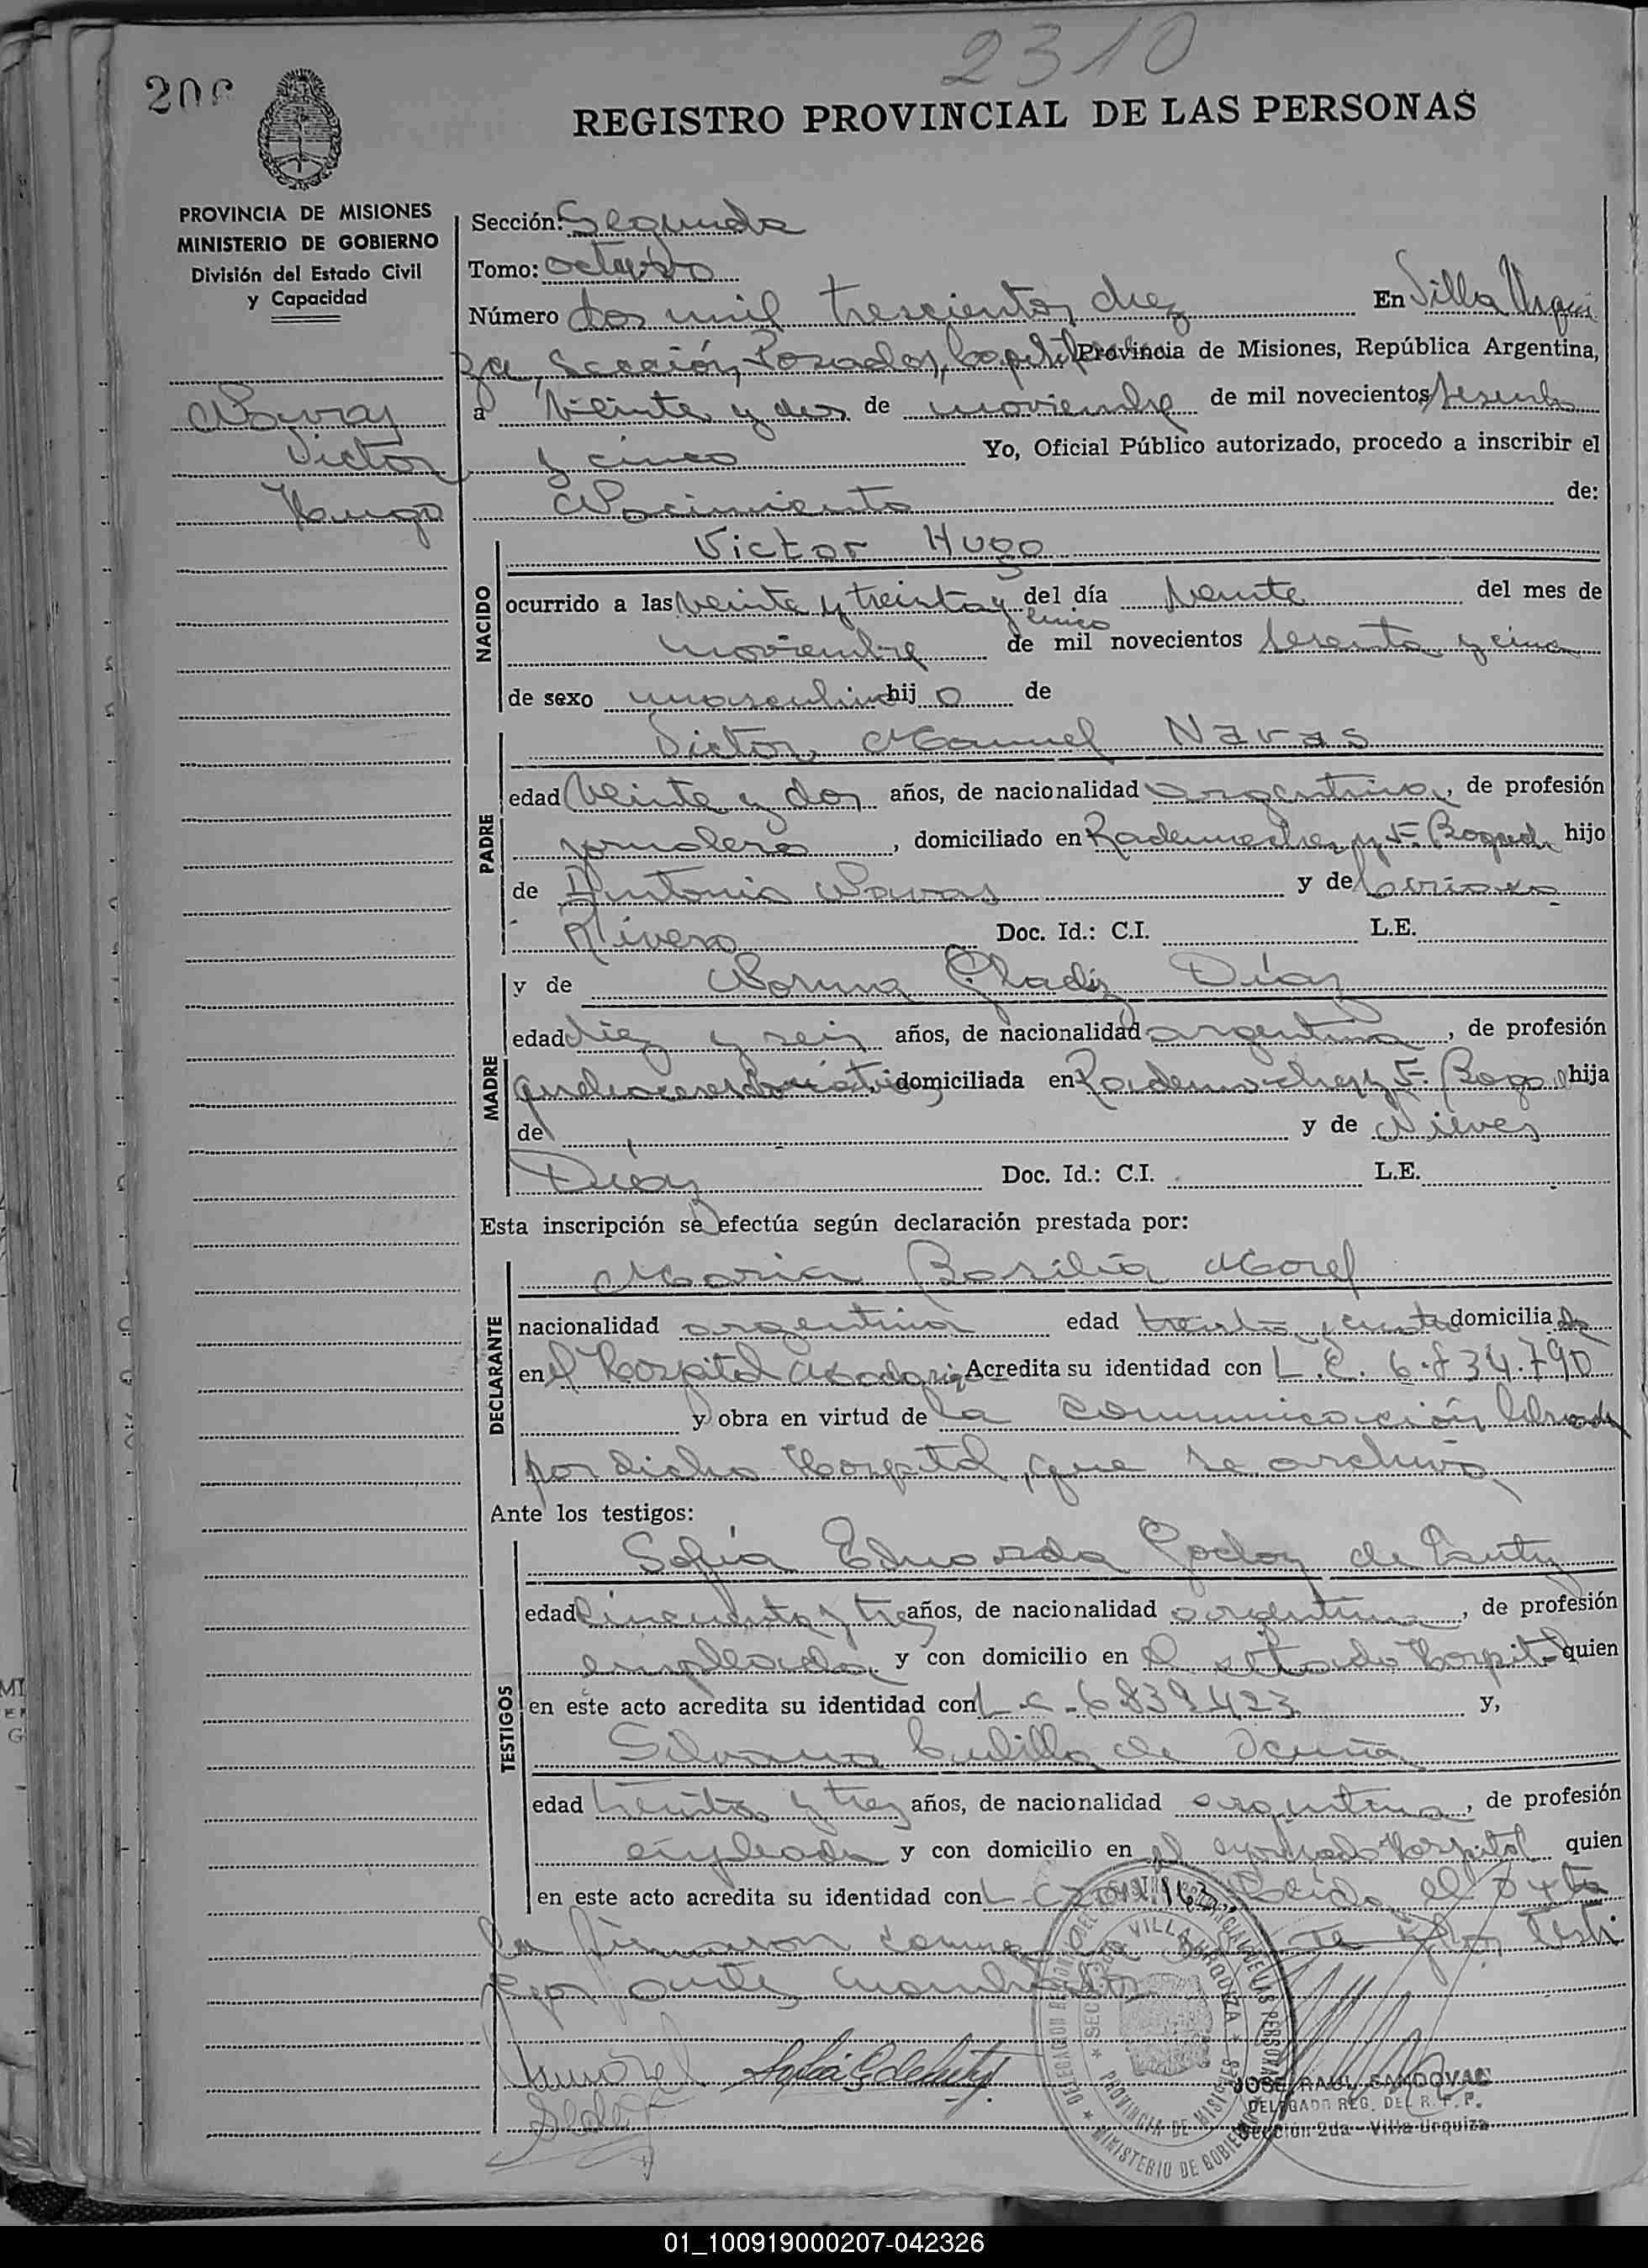 2310
206
REGISTRO PROVINCIAL DE LAS PERSONAS
PROVINCIA DE MISIONES
MINISTERIO DE GOBIERNO
División del Estado Civil
y Capacidad
Sección: Segunda
Tomo: octavo
Número dos mil trescientos diez En Villa Urqui
za, Sección, Posadas, Capital Provincia de Misiones, República Argentina,
a veinte y dos de noviembre de mil novecientos sesenta
y cinco Yo, Oficial Público autorizado, procedo a inscribir el
Nacimiento de:
Navas
Victor
Hugo
NACIDO
Victor Hugo
ocurrido a las veinte y treinta y cinco del día veinte del mes de
noviembre de mil novecientos sesenta y cinco
de sexo masculino hij o de
PADRE
Victor Manuel Navas
edad veinte y dos años, de nacionalidad argentino, de profesión
jornalero, domiciliado en Rademacher y F. Bogado hijo
de Antonio Navas y de
Rivero Doc. Id.: C.I. L.E.
MADRE
y de Norma Gladiz Díaz
edad diez y seis años, de nacionalidad argentina, de profesión
quehaceres domésticos domiciliada en Rademacher y F. Bogado hija
de y de Nieves
Díaz Doc. Id.: C.I. L.E.
Esta inscripción se efectúa según declaración prestada por:
DECLARANTE
Maria Basilia Morel
nacionalidad argentina edad treinta y cuatro domicilia da
en el Hospital Madariaga Acredita su identidad con L.C. 6.834.790
y obra en virtud de la comunicación librada
por dicho Hospital, que se archiva
Ante los testigos:
TESTIGOS
Sofia Eduarda Godoy de
edad cincuenta y tres años, de nacionalidad argentina, de profesión
empleada y con domicilio en el citado Hospital quien
en este acto acredita su identidad con L-C-6839423 y,
Silvana de Acuña
edad treinta y tres años, de nacionalidad argentina, de profesión
empleada y con domicilio en el expresado Hospital quien
en este acto acredita su identidad con L-C Leida el acta
la firmaron los testi
gos antes nombrados
SECCION 2da VILLA URQUIZA
PROVINCIA DE MISIONES
MINISTERIO DE GOBIERNO
JOSE RAUL SANDOVAL
DELEGADO REG. DEL R. P. P.
Sección 2da - Villa Urquiza
01_100919000207-042326